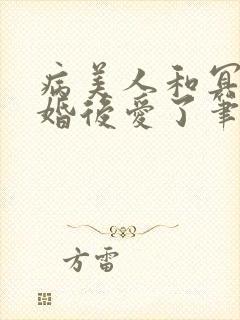 病美人和冥
婚後愛了筆
方雷